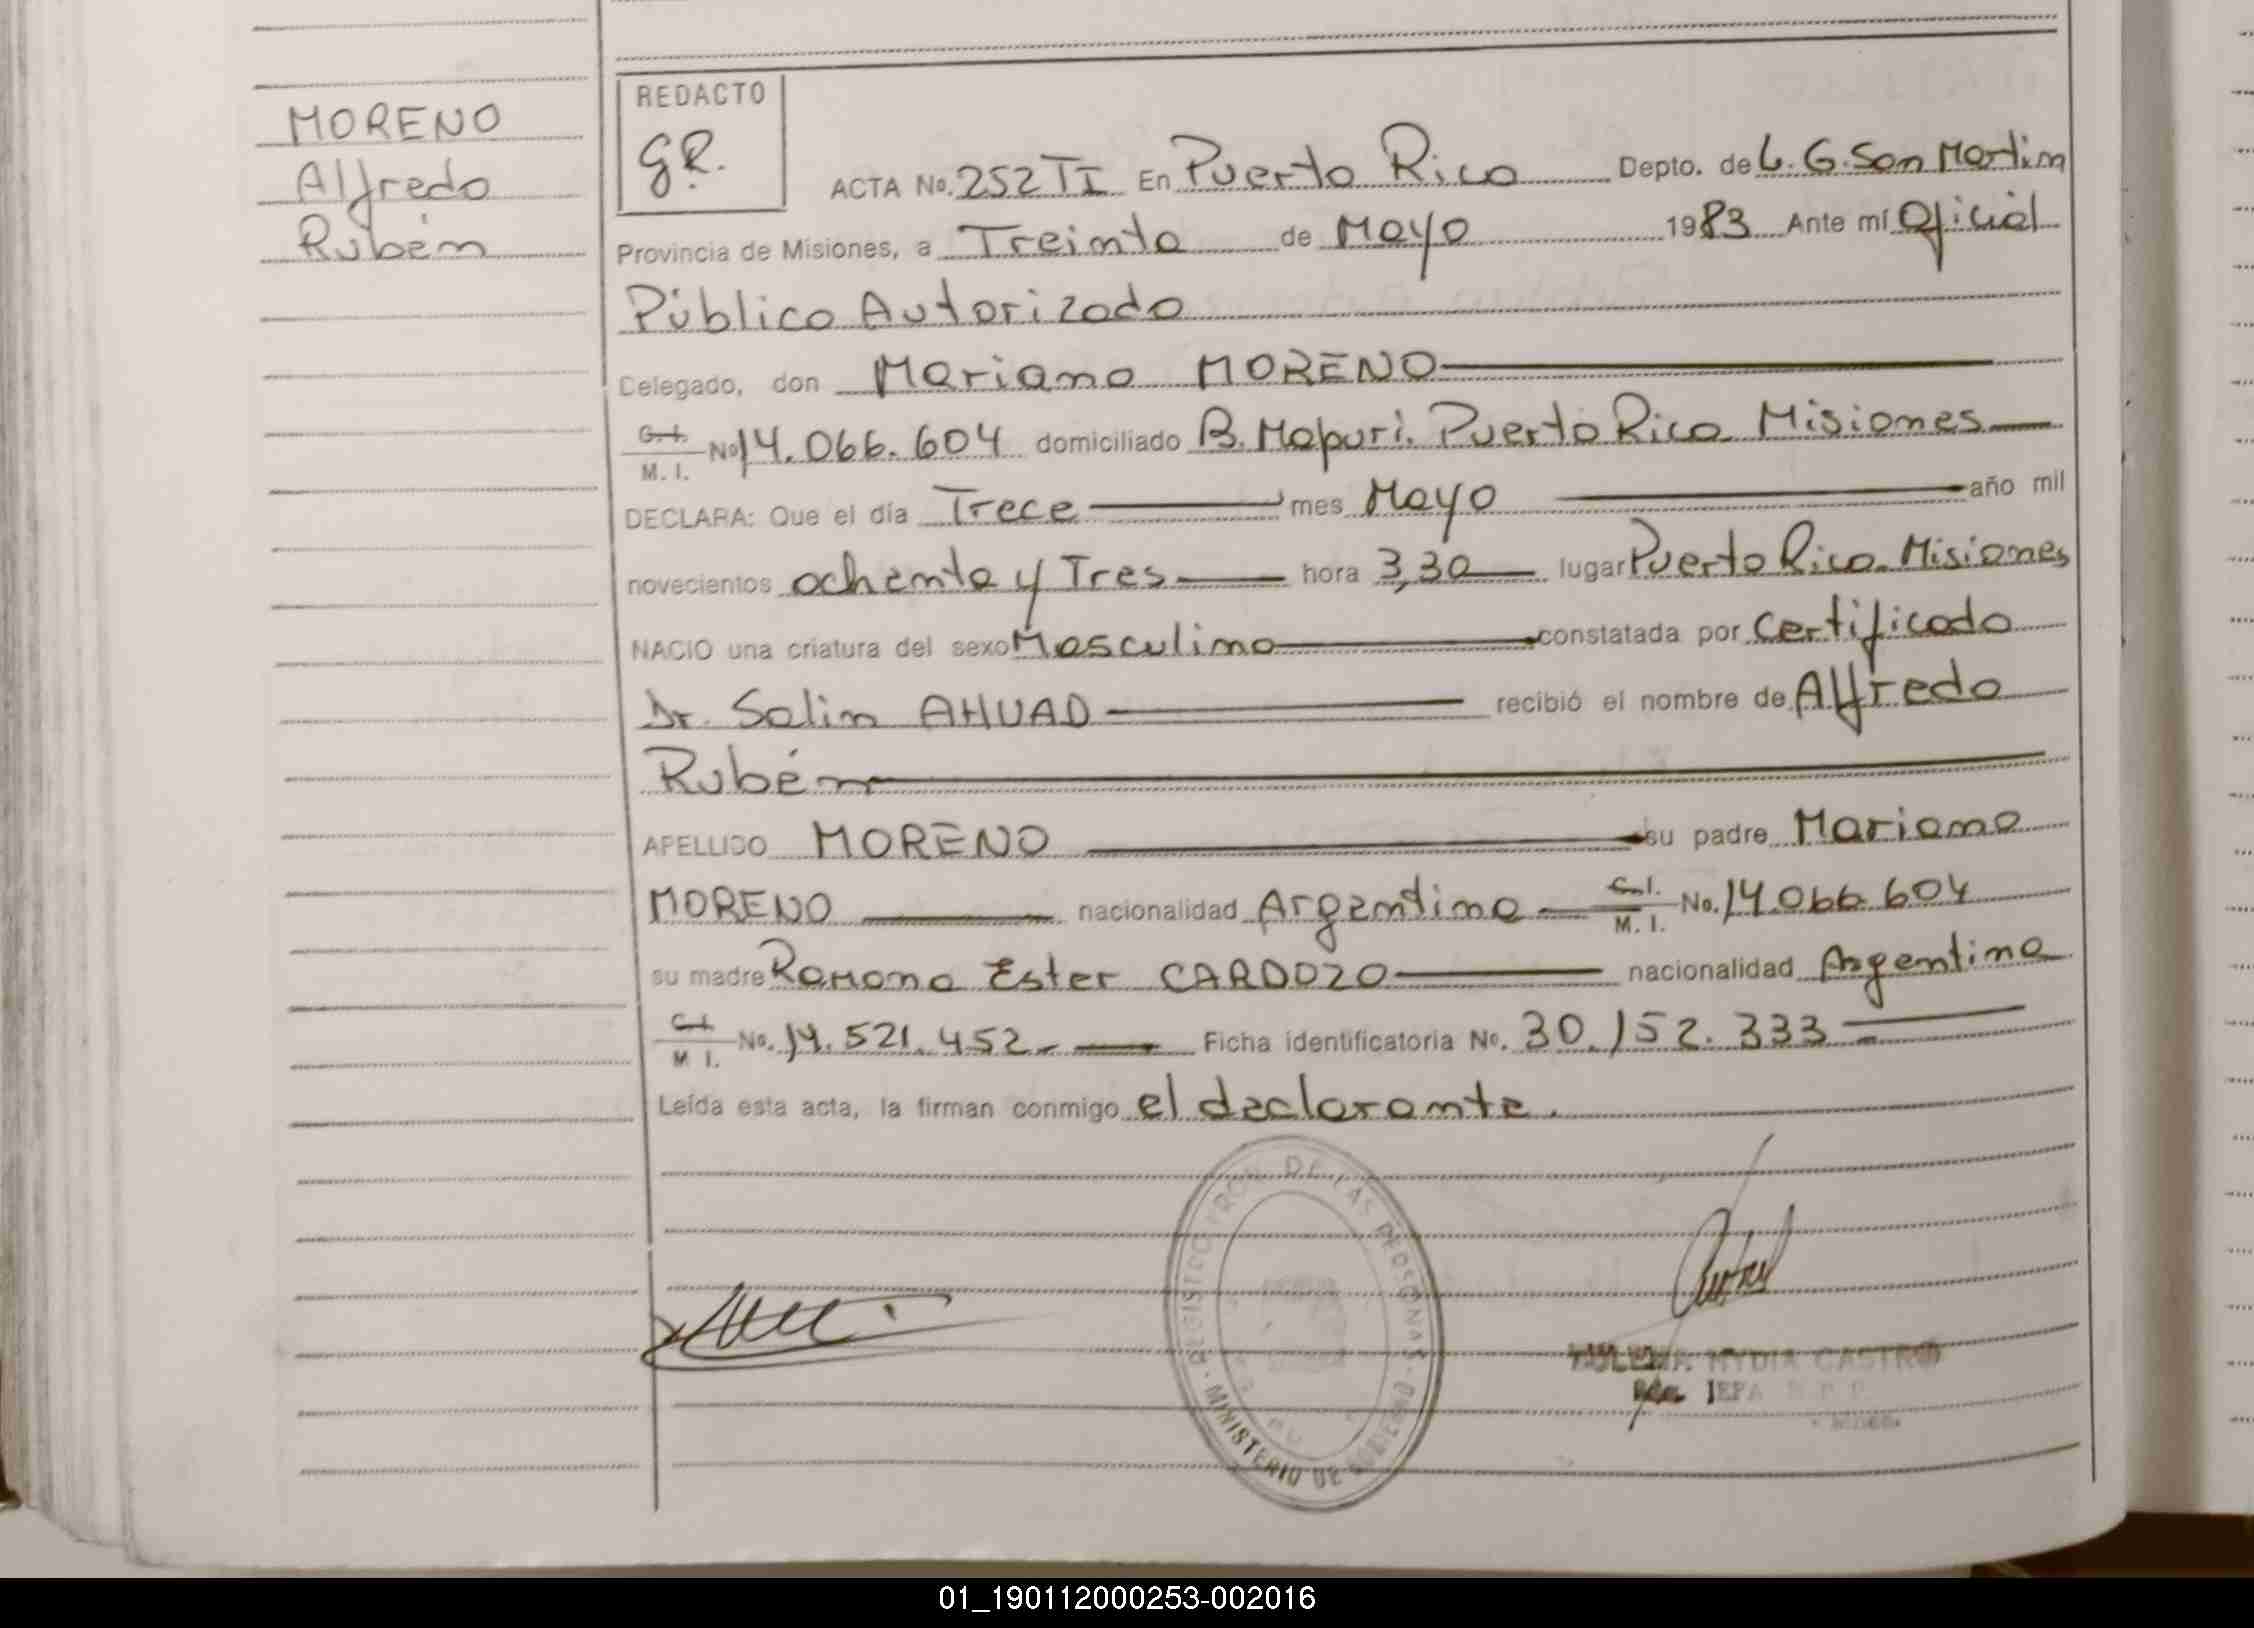 MORENO
Alfredo
Rubén
REDACTO
GR.
ACTA No. 252 TI En Puerto Rico Depto. de L. G. San Martin
Provincia de Misiones, a Treinta de Mayo 1983 Ante mí Oficial
Público Autorizado
Delegado, don Mariano MORENO
C.I. M. I. No 14.066.604 domiciliado B. Mapuri. Puerto Rico Misiones
DECLARA: Que el día Trece mes Mayo año mil
novecientos ochenta y Tres hora 3,30 lugar Puerto Rico. Misiones
NACIO una criatura del sexo Masculino constatada por Certificado
Dr. Salim AHUAD recibió el nombre de Alfredo
Rubén
APELLIDO MORENO su padre Mariano
MORENO nacionalidad Argentino C.I. M. I. No. 14.066.604
su madre Ramona Ester CARDOZO nacionalidad Argentina
C.I. M I. No. 14.521.452 Ficha identificatoria No. 30.152.333
Leída esta acta, la firman conmigo el declarante.
REGISTRO PROV. DE LAS PERSONAS
MINISTERIO DE GOBIERNO
NYDIA CASTRO
01_190112000253-002016